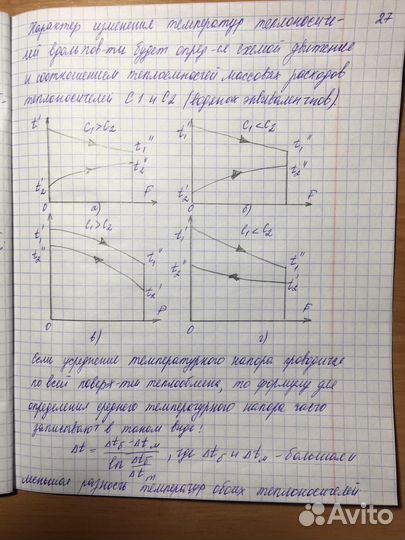 27
Характер изменения температур теплоносите-
лей вдоль пов-ти будет опред-ся схемой движения
и соотношением теплоемкостей массовых расходов
теплоносителей C1 и C2 (водяных эквивалентов).
t1' C1>C2 t1'' t2'' t2' F 0 а)
t1' C1<C2 t1'' t2'' t2' F 0 б)
t1' t2'' C1>C2 t1'' t2' F 0 в)
t1' t2'' C1<C2 t1'' t2' F 0 г)
Если усреднение температурного напора проводится
по всей поверх-ти теплообмена, то формулу для
определения среднего температурного напора часто
записывают в таком виде:
Δt = (Δtб - Δtм) / (ln Δtб/Δtm), где Δtб и Δtм - большая и
меньшая разность температур обоих теплоносителей
Avito